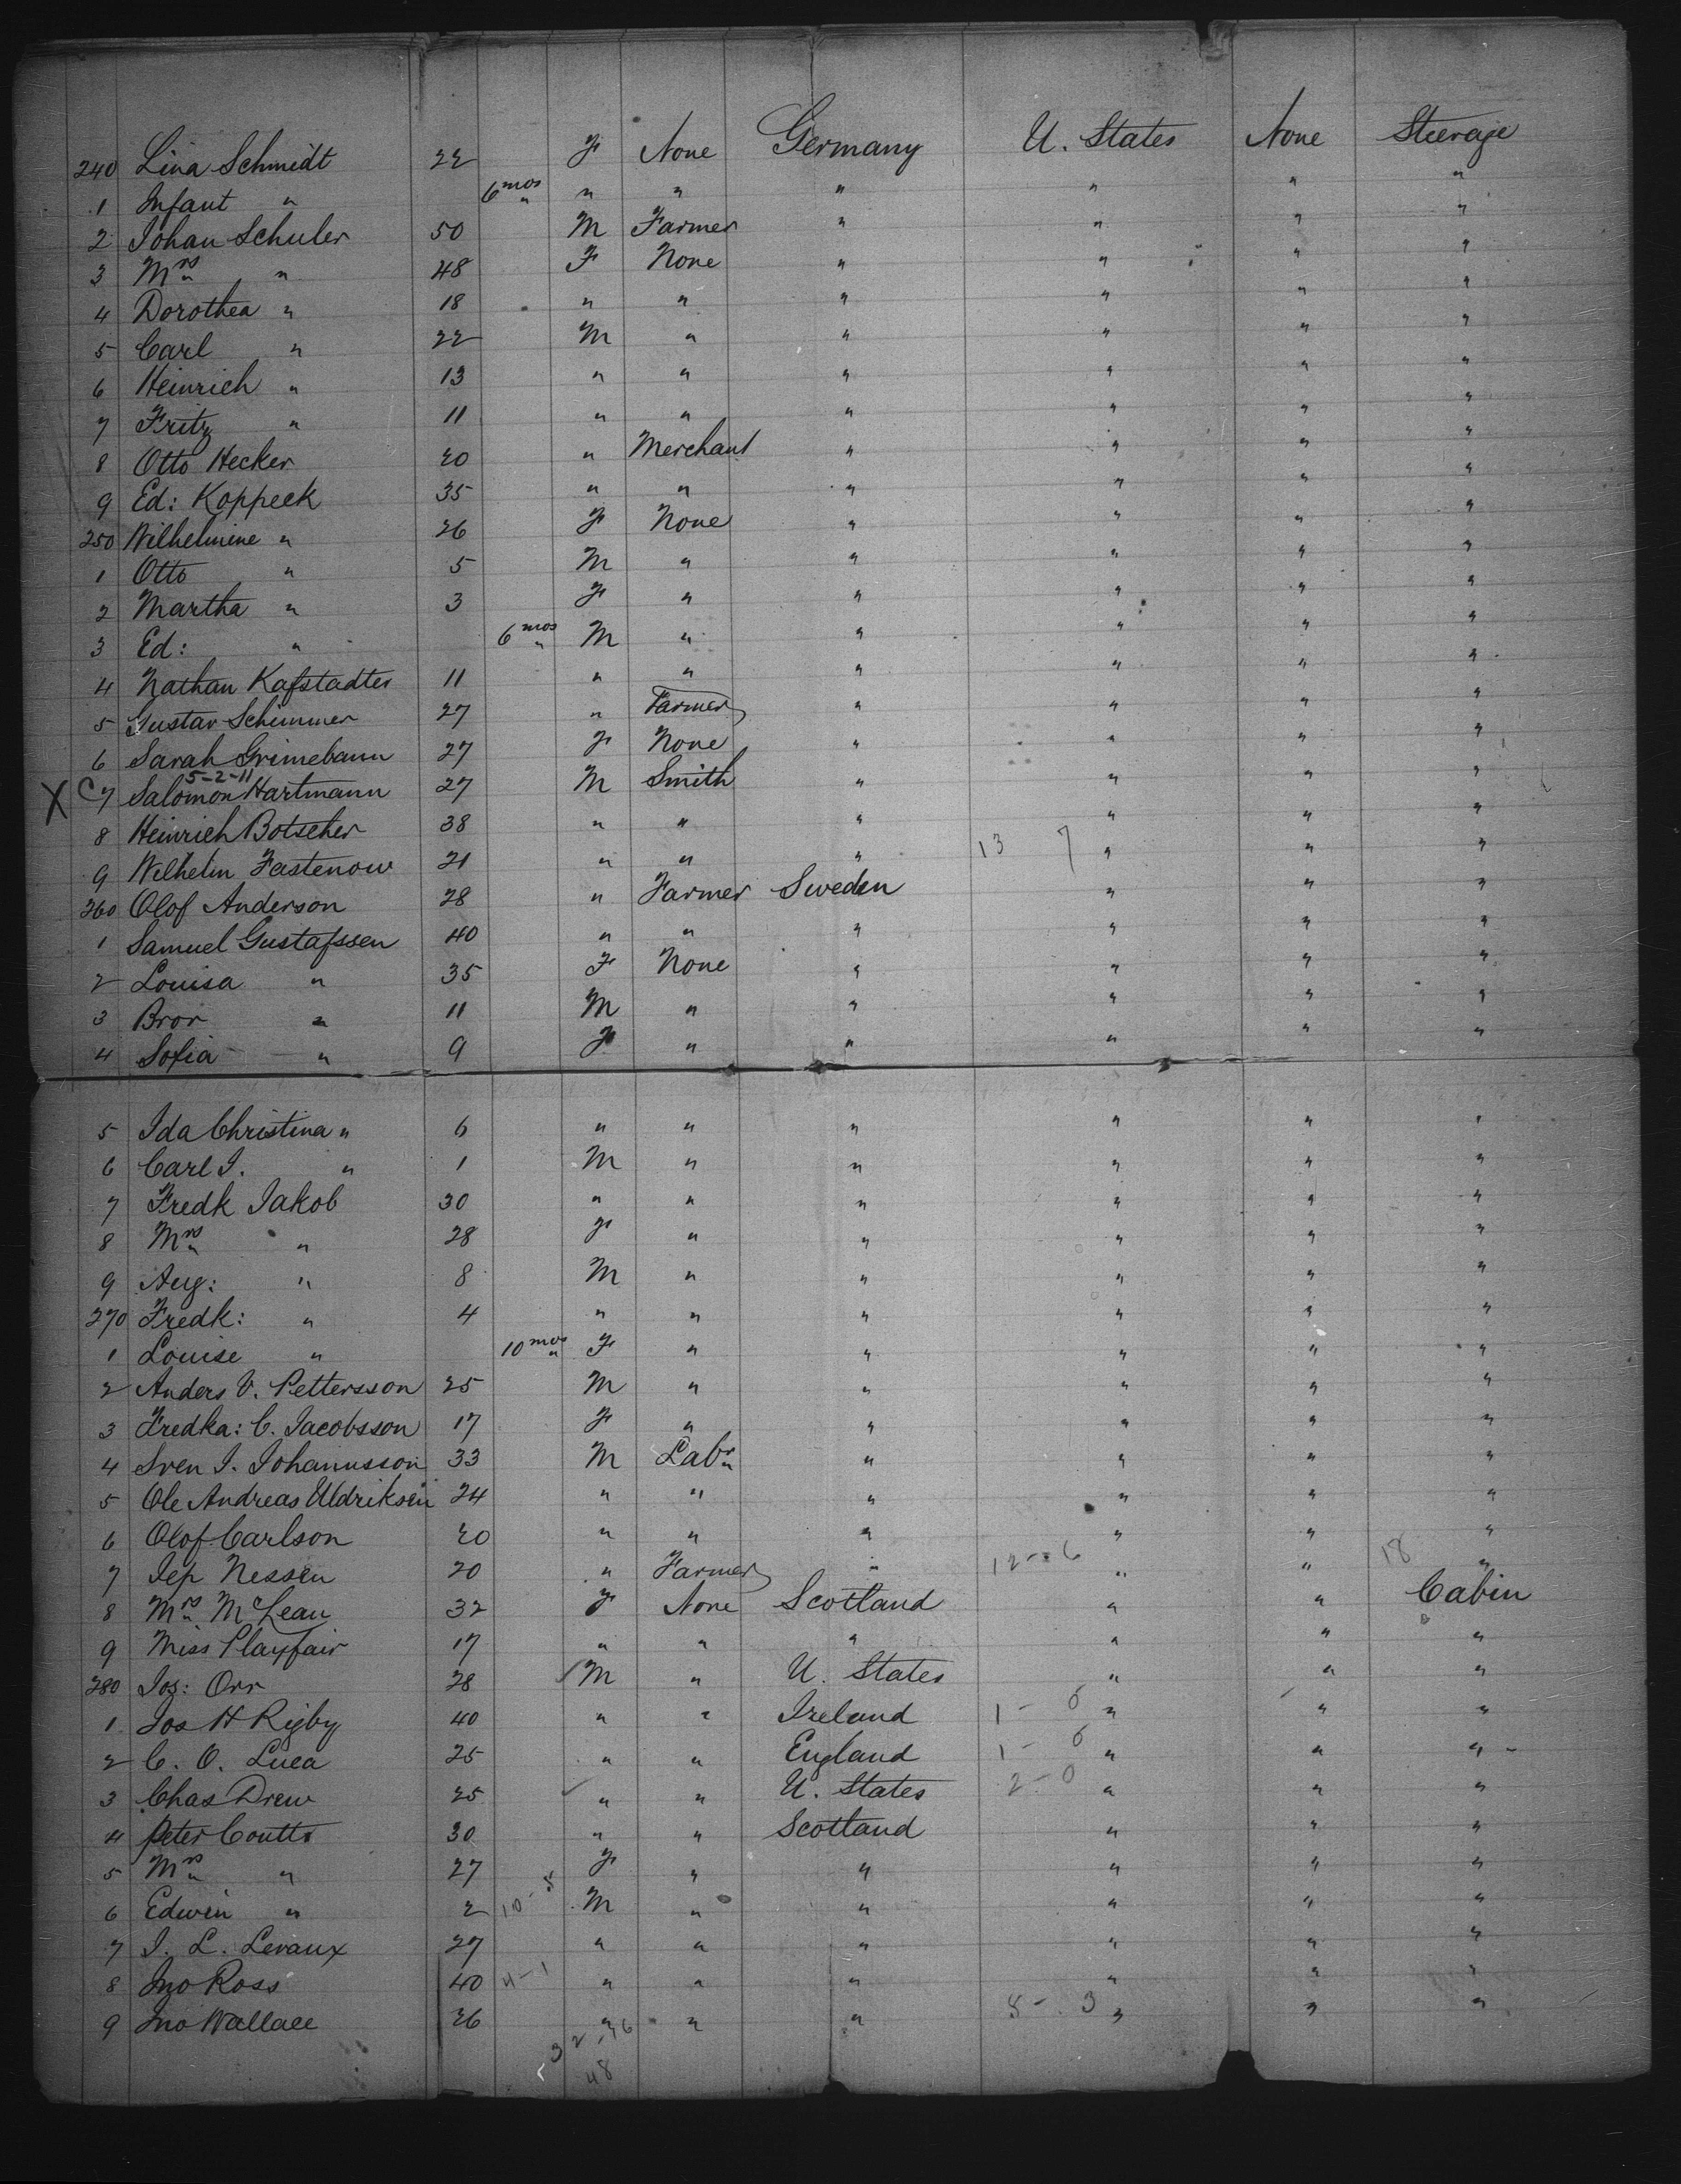 240 Lina Schmidt 22 F None Germany U. States None Steerage
1 Infant " 6 mos " " " " " "
2 Johan Schuler 50 M Farmer " " " "
3 Mrs " 48 F None " " " "
4 Dorothea " 18 " " " " " "
5 Carl " 22 M " " " " "
6 Heinrich " 13 " " " " " "
7 Fritz " 11 " " " " " "
8 Otto Hecker 20 " Merchant " " " "
9 Ed: Koppeck 35 " " " " " "
250 Wilhelmine " 26 F None " " " "
1 Otto " 5 M " " " " "
2 Martha " 3 F " " " " "
3 Ed: " 6 mos M " " " " "
4 Nathan Kafstadter 11 " " " " " "
5 Gustav Schimmer 27 " Farmer " " " "
6 Sarah Grimebaum 27 F None " " " "
5-2-11
X C 7 Salomon Hartmann 27 M Smith " " " "
8 Heinrich Botscher 38 " " " " " "
9 Wilhelm Fastenow 21 " " " 13 7 " " "
260 Olof Anderson 28 " Farmer Sweden " " "
1 Samuel Gustafssen 40 " " " " " "
2 Louisa " 35 F None " " " "
3 Bror " 11 M " " " " "
4 Sofia " 9 F " " " " "
5 Ida Christina " 6 " " " " " "
6 Carl J. " 1 M " " " " "
7 Fredk Jakob 30 " " " " " "
8 Mrs " 28 F " " " " "
9 Aug: " 8 M " " " " "
270 Fredk: " 4 " " " " " "
1 Louise " 10 mos F " " " " "
2 Anders V. Pettersson 25 M " " " " "
3 Fredka: C. Jacobsson 17 F " " " " "
4 Sven J. Johannsson 33 M Labr " " " "
5 Ole Andreas Uldriksen 24 " " " " " "
6 Olof Carlson 20 " " " " " "
7 Jep Nessen 20 " Farmer " 12-6 " " 18 "
8 Mrs McLean 32 F None Scotland " " Cabin
9 Miss Playfair 17 " " " " " "
280 Jos: Orr 28 M " U. States " " "
1 Jos H Rigby 40 " " Ireland 1- 0 " " "
2 C. O. Luca 25 " " England 1- 0 " " "
3 Chas Drew 25 " " U. States 2-0 " " "
4 Peter Coutts 30 " " Scotland " " "
5 Mrs " 27 F " " " " "
6 Edwin " 2 10-5 M " " " " "
7 J. L. Levaux 27 " " " " " "
8 Jno Ross 40 4-1 " " " " " "
9 Jno Wallace 26 " " " 5-3 " " "
32-16
48